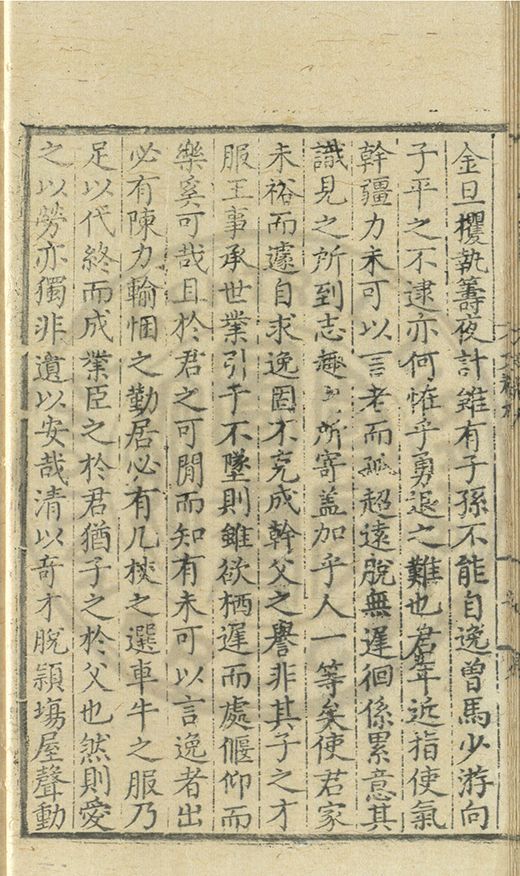 金旦攫執籌夜計雖有子孫不能自逸曽馬少游向
子平之不逮亦何恠乎勇退之難也君年近指使氣
幹彊力未可以言老而孤超遠脫無遲徊係累意其
識見之所到志趣之所寄盖加乎人一等矣使君家
未裕而遽自求逸固不克成幹父之譽非其子之才
服王事承世業引于不墜則雖欲栖遲而處偃仰而
樂奚可哉且於君之可閒而知有未可以言逸者出
必有陳力輸悃之勤居必有几杖之選車牛之服乃
足以代終而成業臣之於君猶子之於父也然則愛
之以勞亦獨非遺以安哉清以奇才脫穎場屋聲動